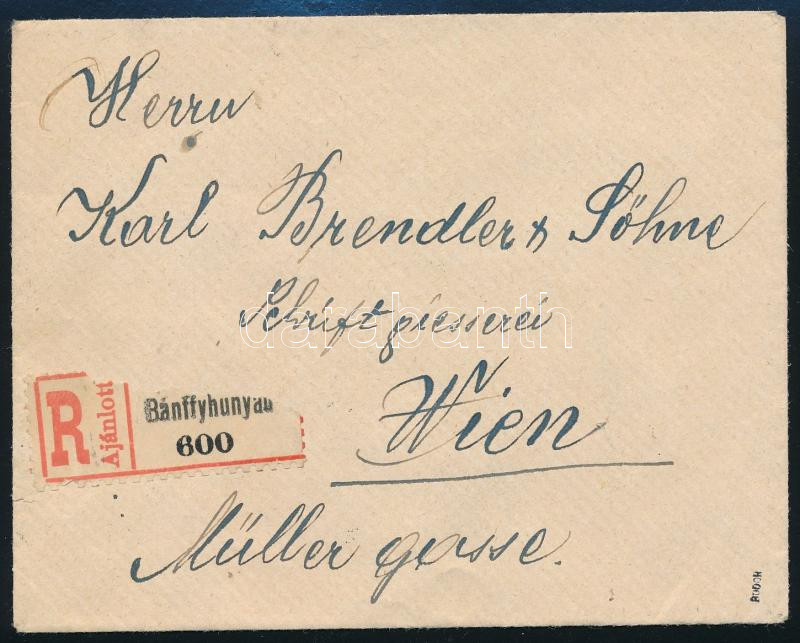 Herrn
Karl Brendler & Söhne
Schriftgiesserei
darabanth
R Ajánlott Bánffyhunyad
600
Wien
Müller gasse.
BODOR